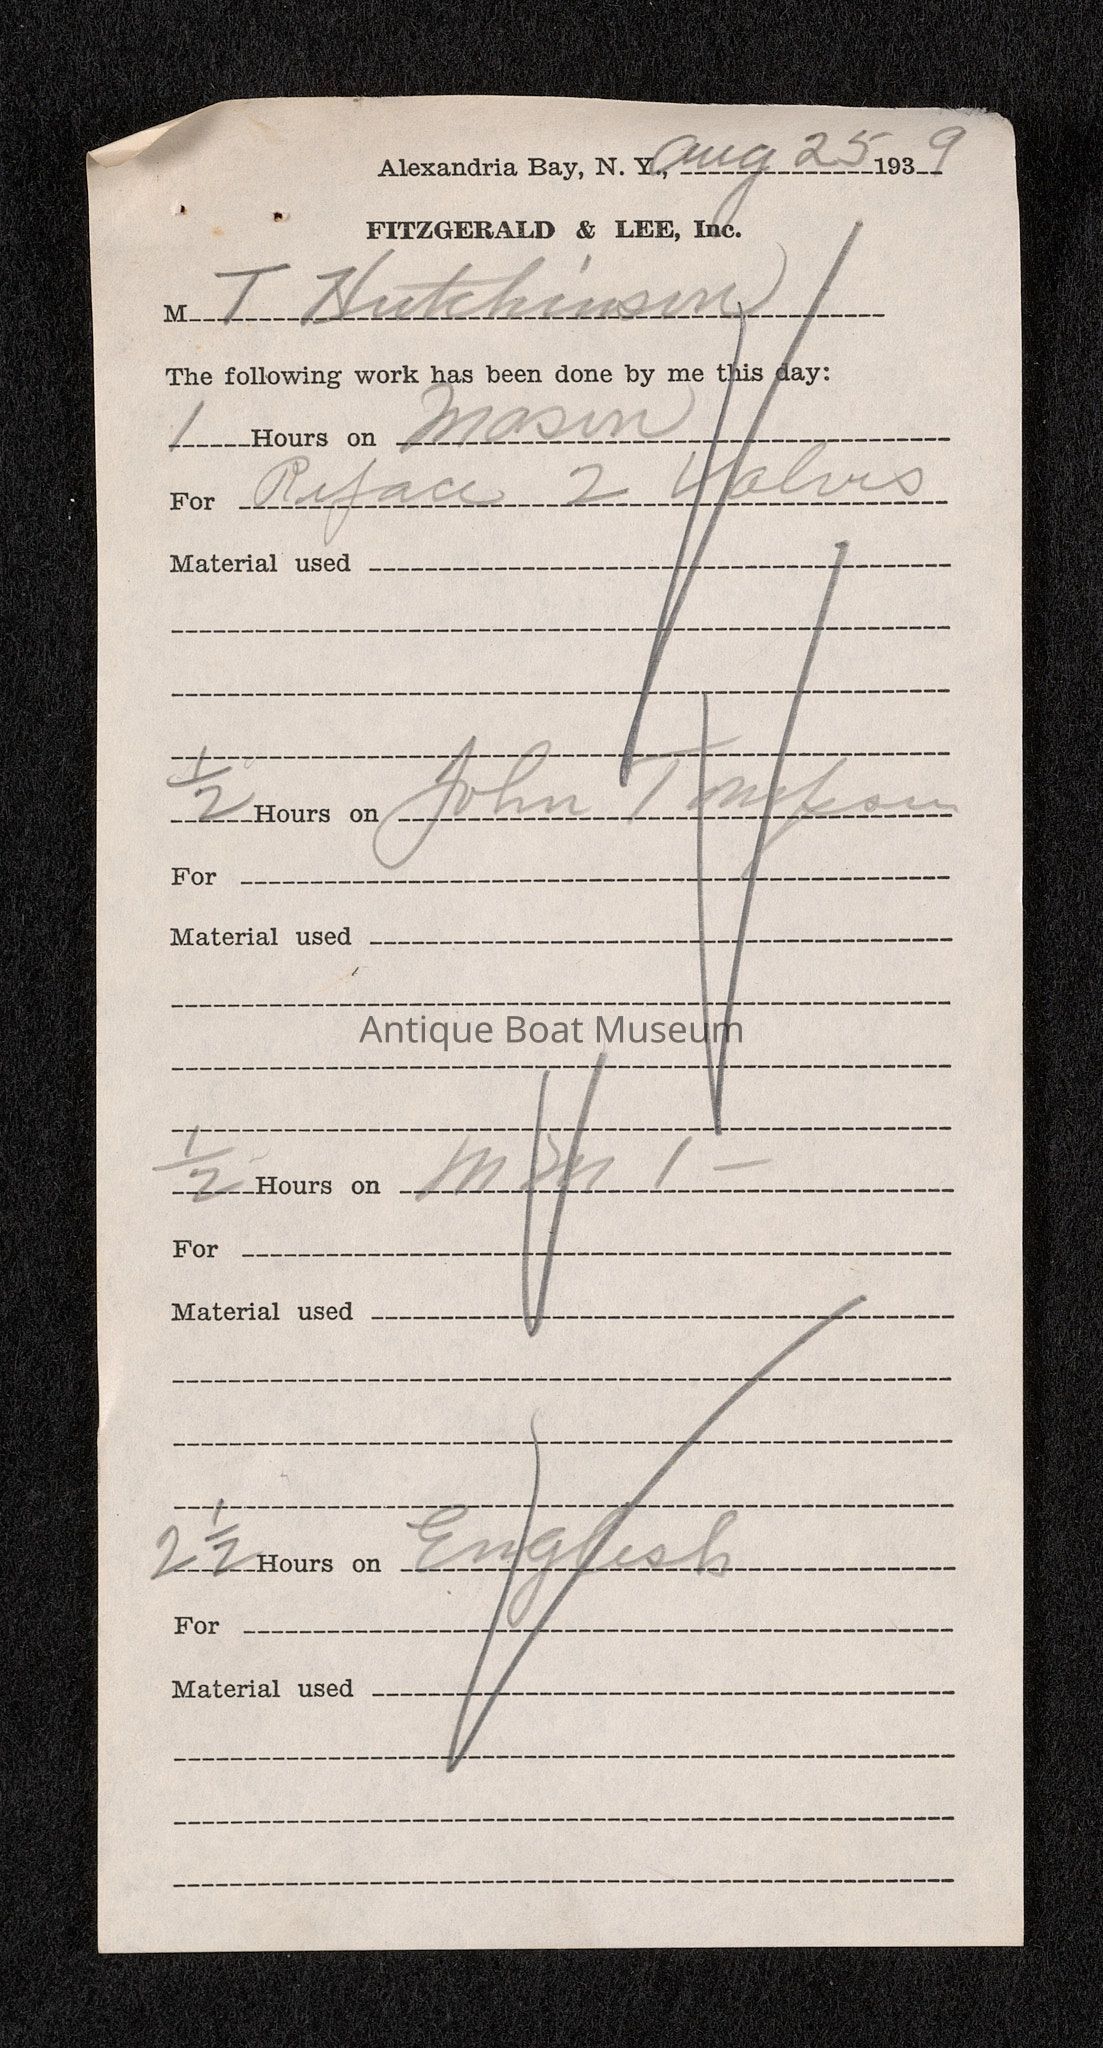 Alexandria Bay, N. Y., Aug 25 1939
FITZGERALD & LEE, Inc.
M T Hutchinson
The following work has been done by me this day:
1 Hours on Mason
For Reface 2 Valves
Material used
1/2 Hours on John
For
Material used
Antique Boat Museum
1/2 Hours on
For
Material used
2 1/2 Hours on English
For
Material used